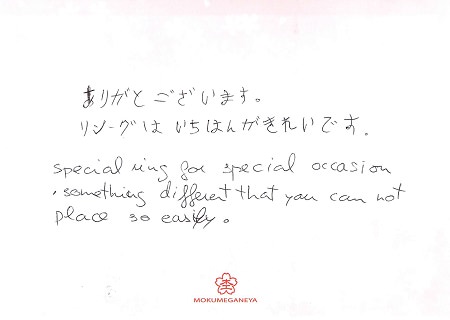 ありがとございます。
リングは いちはんがきれいです.
special ring for special occasion
, something different that you can not
place so easily.
MOKUMEGANEYA